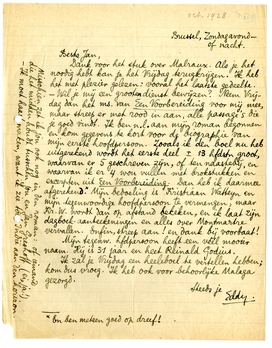 oct. 1928
Brussel, Zondagavond –
of nacht.
Beste Jan,
Dank voor het stuk over Malraux. Als je het
noodig hebt kan je het Vrijdag terugkrijgen. Ik heb
het met plezier gelezen: vooral het laatste gedeelte.
– Wil je mij een grooten dienst bewijzen? Neem Vrij-
dag dan het ms. van Een Voorbereiding voor mij mee,
maar streep er met rood in aan, alle passages die
je goed vindt. Ik ben n.l. aan mijn roman begonnen
en kom gegevens te kort voor de biografie van
mijn eersten hoofdpersoon. Zooals ik den boel nu heb
uitgerekend wordt het eerste deel ± 13 hfdst. groot,
waarvan er 5 geschreven zijn, of ten naastenbij, en
waarvan ik er 4 wou vullen met brokstukken en
excerpten uit Een Voorbereiding. Dan kan ik daarmee
afgaan. Mijn bedoeling is Kristiaan Watteyn en
mijn tegenwoordige hoofdpersoon te vermengen, maar
Kr. W. wordt dan op afstand bekeken, ik laat zijn
dagboek-aanteekeningen en alles over Montmartre
vervallen. Enfin, streep aan! en dank bij voorbaat!
Mijn tegenw. hfdpersoon heeft een veel mooier
naam. Hij is 31 jaar en heet Reinald Godius.
Ik zal je Vrijdag een heeleboel te vertellen hebben;
kom dus vroeg. Ik heb ook voor behoorlijke Malaga
gezorgd.
Steeds je
Eddy.
En ben meteen goed op dreef!